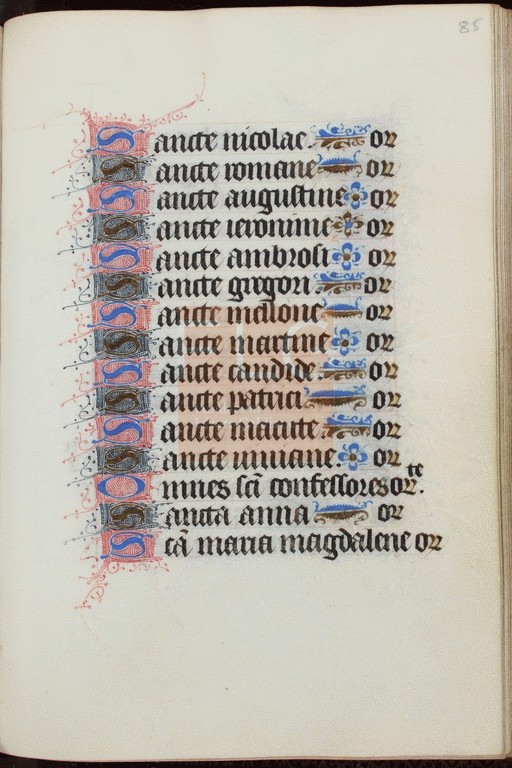 85
Sancte nicolae or
Sancte romane or
Sancte augustine or
Sancte ieronime or
Sancte ambrosi or
Sancte gregori or
Sancte mellone or
Sancte martine or
Sancte candide or
Sancte patrici or
Sancte macute or
Sancte viviane or
Omnes scī confessores orte.
Sancta anna or
Scā maria magdalene or